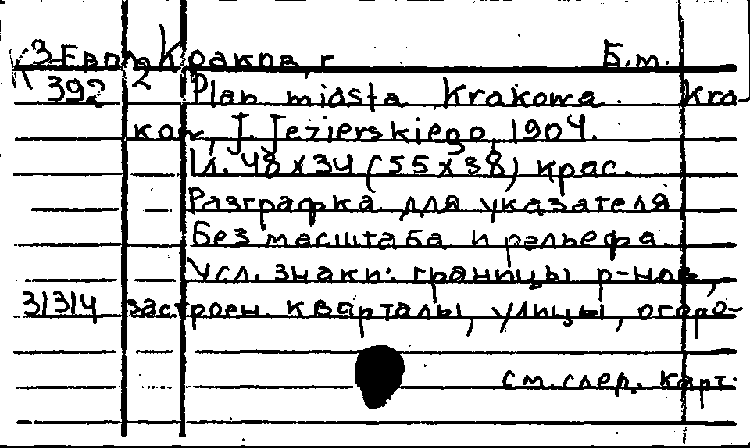 К3-Европ Краков, г. Б.м.
392 2 Plan miasta Krakowa. Kra-
kow, J. Jezierskiego, 1904.
1л. 48 x 34 (55 x 38) крас.
Разграфка для указателя
Без масштаба и рельефа.
Усл. знаки: границы р-нов,
31314 застроен. кварталы, улицы, огоро-
см. след. карт.